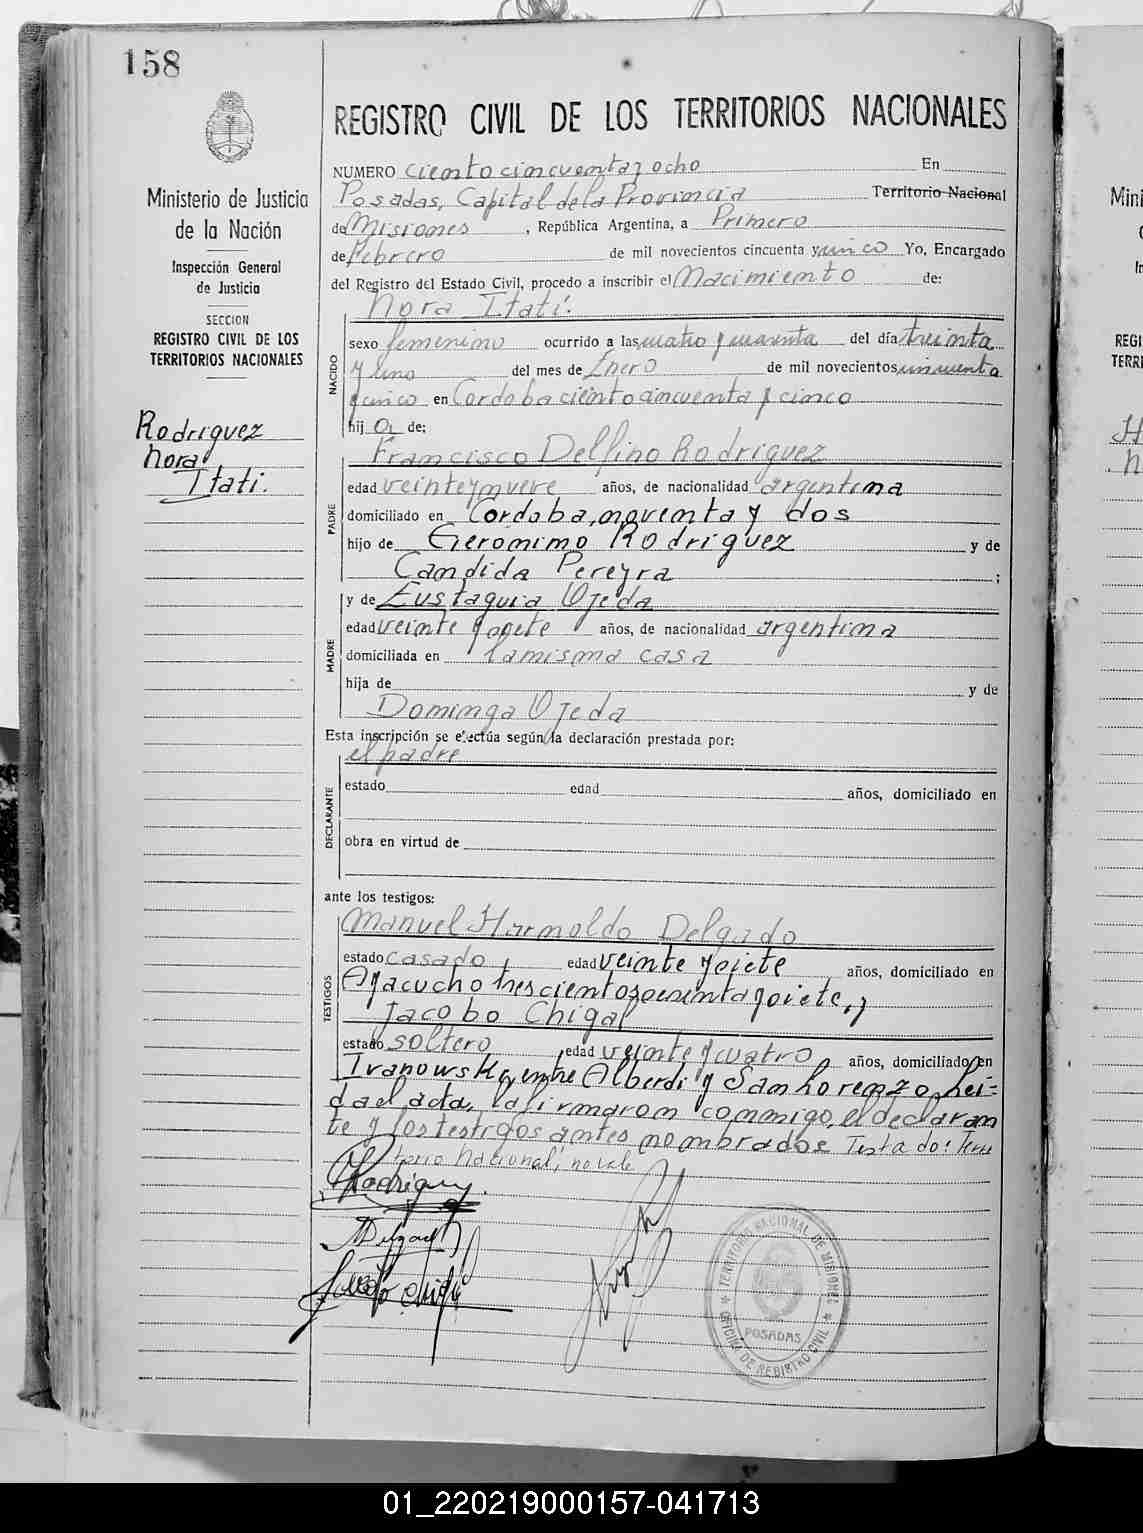 158
Ministerio de Justicia
de la Nación
Inspección General
de Justicia
SECCION
REGISTRO CIVIL DE LOS
TERRITORIOS NACIONALES
Rodriguez
Nora
Itati.
REGISTRO CIVIL DE LOS TERRITORIOS NACIONALES
NUMERO ciento cincuenta y ocho En
Posadas, Capital de la Provincia Territorio Nacional
de Misiones, República Argentina, a Primero
de Febrero de mil novecientos cincuenta y cinco Yo, Encargado
del Registro del Estado Civil, procedo a inscribir el Nacimiento de:
Nora Itatí.
NACIDO
sexo femenino ocurrido a las cuatro y cuarenta del día treinta
y uno del mes de Enero de mil novecientos cincuenta
y cinco en Cordoba ciento cincuenta y cinco
hij a de:
Francisco Delfino Rodriguez
PADRE
edad veinte y nueve años, de nacionalidad argentina
domiciliado en Cordoba, noventa y dos
hijo de Gerónimo Rodriguez y de
Candida Pereyra ;
y de Eustaquia Ojeda
MADRE
edad veinte y siete años, de nacionalidad argentina
domiciliada en la misma casa
hija de y de
Dominga Ojeda
Esta inscripción se efectúa según la declaración prestada por:
el padre
DECLARANTE
estado edad años, domiciliado en
obra en virtud de
ante los testigos:
Manuel Harnoldo Delgado
TESTIGOS
estado casado edad veinte y siete años, domiciliado en
Ayacucho trescientos sesenta y siete, y
Jacobo Chigal
estado soltero, edad veinte y cuatro años, domiciliado en
Ivanowski, entre Alberdi y San Lorenzo, lei-
da el acta, la firmaron conmigo, el declaran
te y los testigos antes nombrados. Testado: Terri
torio Nacional, no vale
Rodriguez.
Delgado
Jacobo Chigal
TERRITORIO NACIONAL DE MISIONES
OFICINA DE REGISTRO CIVIL
POSADAS
Mini
REGI
TERR
01_220219000157-041713